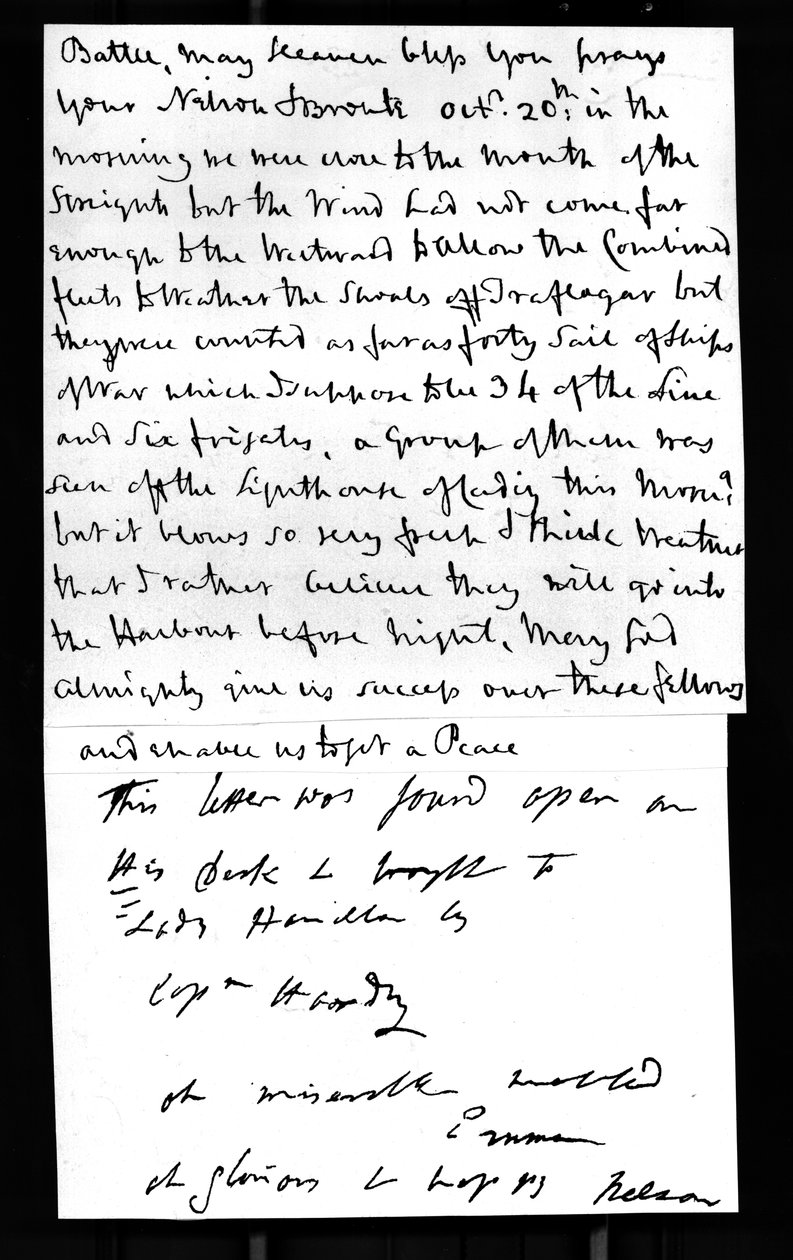 Battle, may Heaven bless you prays
your Nelson & Bronte Octr. 20th: in the
morning we were close to the mouth of the
Streights but the Wind had not come far
enough to the Westward to allow the Combined
fleets to Weather the Shoals off Traflagar but
they were counted as far as forty Sail of Ships
of War which I suppose to be 34 of the Line
and Six frigates, a Group of them was
seen off the Lighthouse of Cadiz this Morng
but it blows so very fresh & thick weather
that I rather believe they will go into
the Harbour before night, May God
Almighty give us success over these fellows
and enable us to get a Peace
This letter was found open on
His Desk & brought to
Lady Hamilton by
Capn Hardy
oh miserable wretched
Emma
oh glorious & happy Nelson